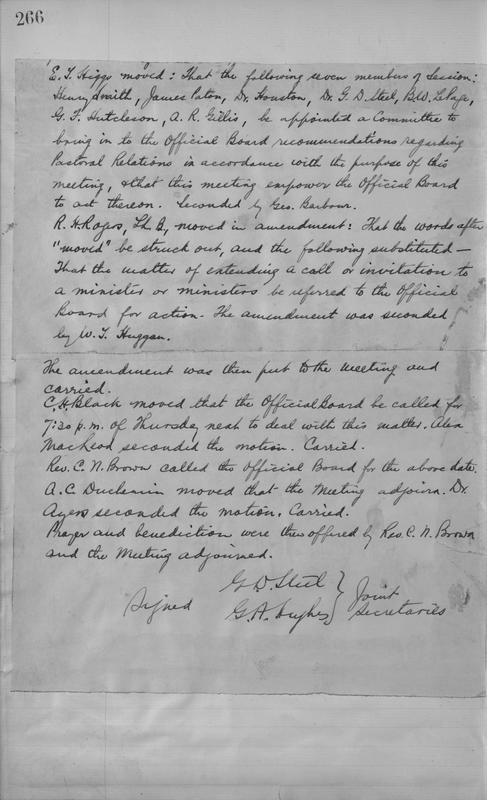 266
E. T. Higgs moved: That the following seven members of Session:
Henry Smith, James Paton, Dr. Houston, Dr. G. D. Steel, B.W. LePage,
G. F. Hutcheson, A. R. Gillis, be appointed a Committee to
bring in to the Official Board recommendations regarding
Pastoral Relations in accordance with the purpose of this
meeting, & that this meeting empower the Official Board
to act thereon. Seconded by Geo. Barbour.
R. H. Rogers, moved in amendment: That the words after
"moved" be struck out, and the following substituted —
That the matter of extending a call or invitation to
a minister or ministers be referred to the Official
Board for action. The amendment was seconded
by W. T. Huggan.
The amendment was then put to the meeting and
carried.
C. H. Black moved that the Official Board be called for
7:30 p.m. of Thursday next to deal with this matter. Alex
MacLeod seconded the motion. Carried.
Rev. C. N. Brown called the Official Board for the above date.
A. C. Duchemin moved that the Meeting adjourn. Dr.
Ayers seconded the motion. Carried.
Prayer and benediction were then offered by Rev. C. N. Brown
and the Meeting adjourned.
Signed
G. D. Steel } Joint
G. A. Hughes } Secretaries